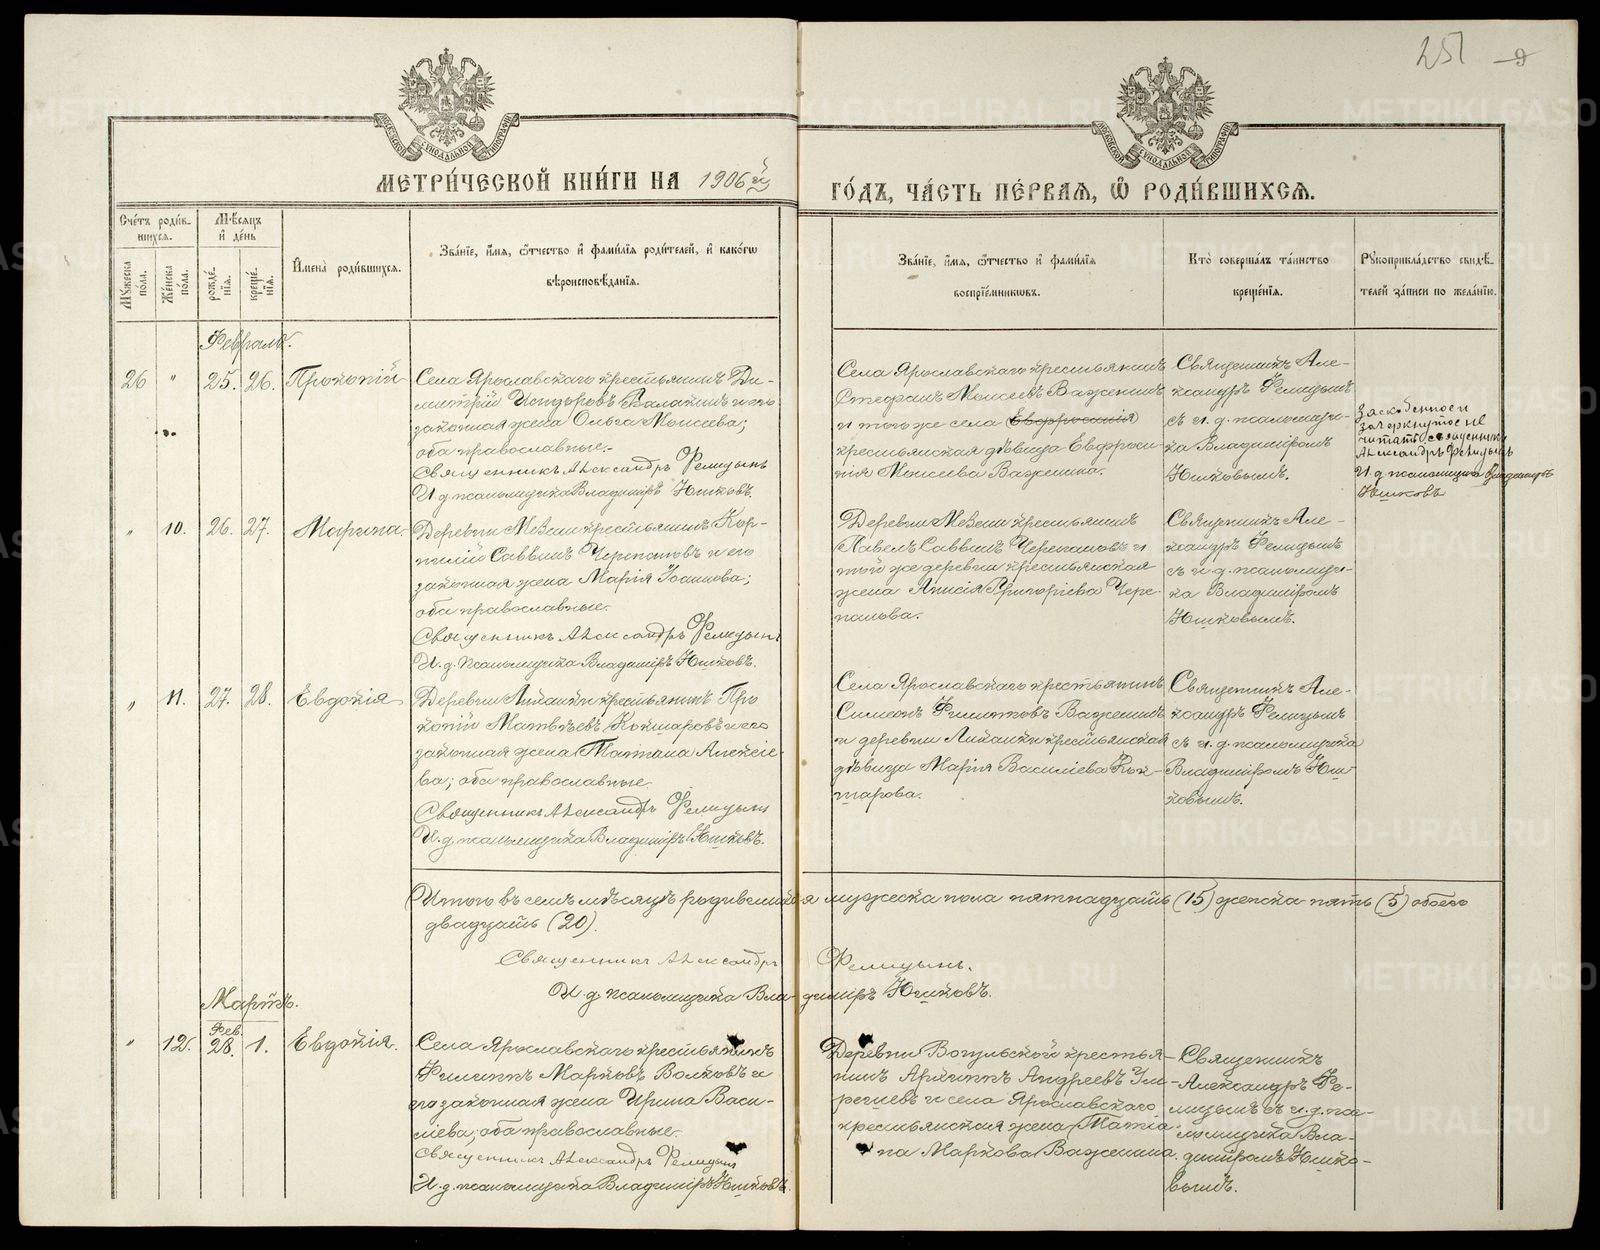 251
МЕТРИ́ЧЕСКОЙ КНИ́ГИ НА 1906й
ГО́ДЪ, ЧА́СТЬ ПЕ́РВАЯ, Ѽ РОДИ́ВШИХСЯ.
Сче́тъ роди́в-
шихся.
Му́жеска по́ла.
Же́нска по́ла.
Мѣ́сяцъ
и҆ де́нь
рожде́-
нїя.
креще́-
нїя.
И҆мена̀ роди́вшихся.
Зва́нїе, и҆́мя, ѻ҆́тчество и҆ фами́лїя роди́телей, и҆ како́гѡ
вѣроисповѣ́данїя.
Зва́нїе, и҆́мя, ѻ҆́тчество и҆ фами́лїя
воспрїе́мниковъ.
Кто̀ соверша́лъ та́инство
креще́нїя.
Рꙋкоприкла́дство свидѣ́-
телей за́писи по жела́нїю.
Февраль.
26 " 25. 26. Прокопій
Села Ярославскаго крестьянинъ Ди-
митрій Исидоровъ Балакинъ и его
законная жена Ольга Моисеева;
оба православные.
Священникъ Александръ Фелицынъ
И. д. псаломщика Владиміръ Юшковъ.
Села Ярославскаго крестьянинъ
Стефанъ Моисеевъ Важенинъ
и того же села (Евфросинія)
крестьянская дѣвица Евфроси-
нія Моисеева Важенина.
Священникъ Але-
ксандръ Фелицынъ
съ и. д. псаломщи-
ка Владиміромъ
Юшковымъ.
Заскобленное и
зачеркнутое не
читать священникъ
Александръ Фелицынъ
И. д. псаломщика Владиміръ
Юшковъ
" 10. 26. 27. Марина.
Деревни крестьянинъ Кор-
нилій Саввинъ Черепановъ и его
законная жена Марія Іоаннова;
оба православные.
Священникъ Александръ Фелицынъ
И. д. псаломщика Владиміръ Юшковъ.
Деревни крестьянинъ
Павелъ Саввинъ Черепановъ и
той же деревни крестьянская
жена Анисія Григоріева Чере-
панова.
Священникъ Але-
ксандръ Фелицынъ
съ и. д. псаломщи-
ка Владиміромъ
Юшковымъ.
" 11. 27. 28. Евдокія
Деревни Липанки крестьянинъ Про
копій Матвѣевъ Кокшаровъ и его
законная жена Татіана Алексіе-
ва; оба православные
Священникъ Александръ Фелицынъ
И. д. псаломщика Владиміръ Юшковъ.
Села Ярославскаго крестьянинъ
Симеонъ Филипповъ Важенинъ
и деревни Липанки крестьянская
дѣвица Марія Василіева Кок-
шарова.
Священникъ Але-
ксандръ Фелицынъ
съ и. д. псаломщика
Владиміромъ Юш-
ковымъ.
Итого въ семъ мѣсяцѣ родившихся мужеска пола пятнадцать (15) женска пять (5) обоего
двадцать (20).
Священникъ Александръ Фелицынъ.
И. д. псаломщика Владиміръ Юшковъ.
Мартъ.
Фев.
" 12. 28. 1. Евдокія.
Села Ярославскаго крестьянинъ
Филиппъ Марковъ Волковъ и
его законная жена Ирина Васи-
ліева; оба православные.
Священникъ Александръ Фелицынъ
И. д. псаломщика Владиміръ Юшковъ.
Деревни Вогульской крестья-
нинъ Архиппъ Андреевъ
и села Ярославскаго
крестьянская жена Татіа-
на Маркова Важенина.
Священникъ
Александръ Фе-
лицынъ съ и. д. пса-
ломщика Вла-
диміромъ Юшко-
вымъ.
METRIKI.GASO-URAL.RU